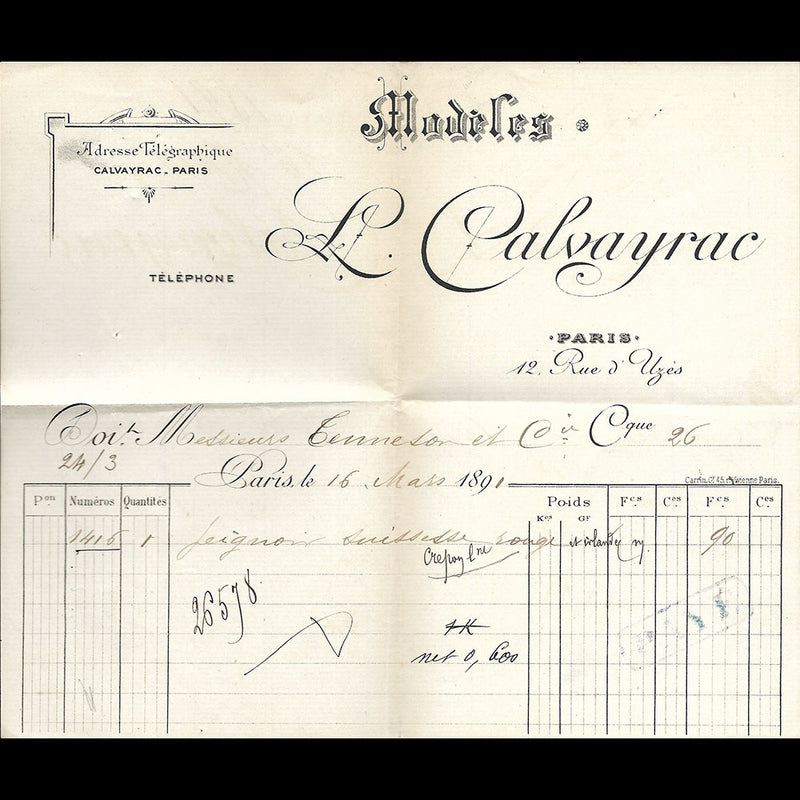 Modèles
Adresse Télégraphique
CALVAYRAC - PARIS
L. Calvayrac
TÉLÉPHONE
· PARIS ·
12, Rue d'Uzès
Doit Messieurs Tenneson et Cie Cque 26
24/3
Paris, le 16 Mars 1891
Pon Numéros Quantités Poids Fcs Ces Fcs Ces
Kos Gr
1416 1 peignoir suissesse rouge 90
Crepon lne
26578
1K
net 0,600